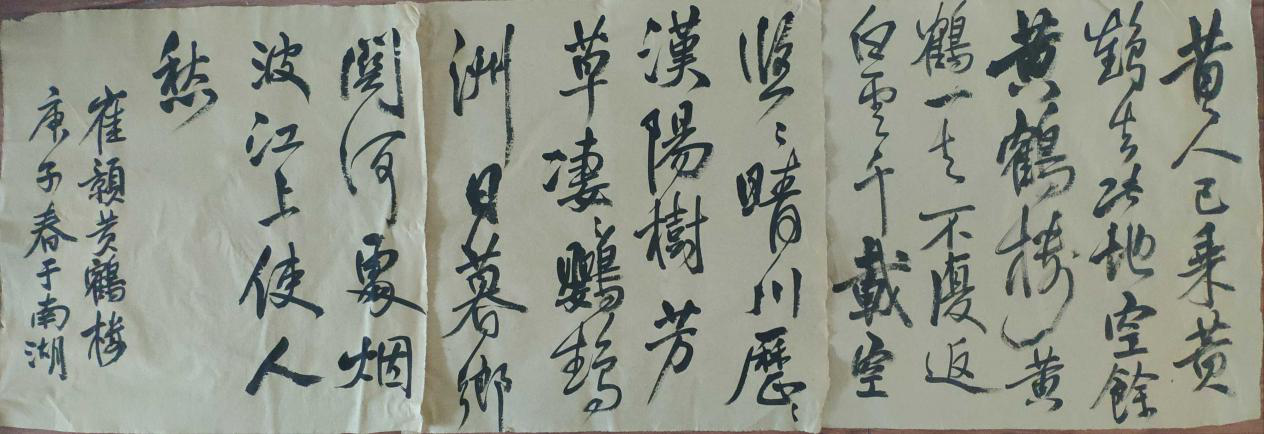 昔人已乘黄
鶴去此地空餘
黄鶴楼黄
鶴一去不復返
白雲千載空
悠〻晴川歷〻
漢陽樹芳
草凄〻鸚鵡
洲日暮鄉
関何處烟
波江上使人
愁
崔顥黄鶴楼
庚子春于南湖